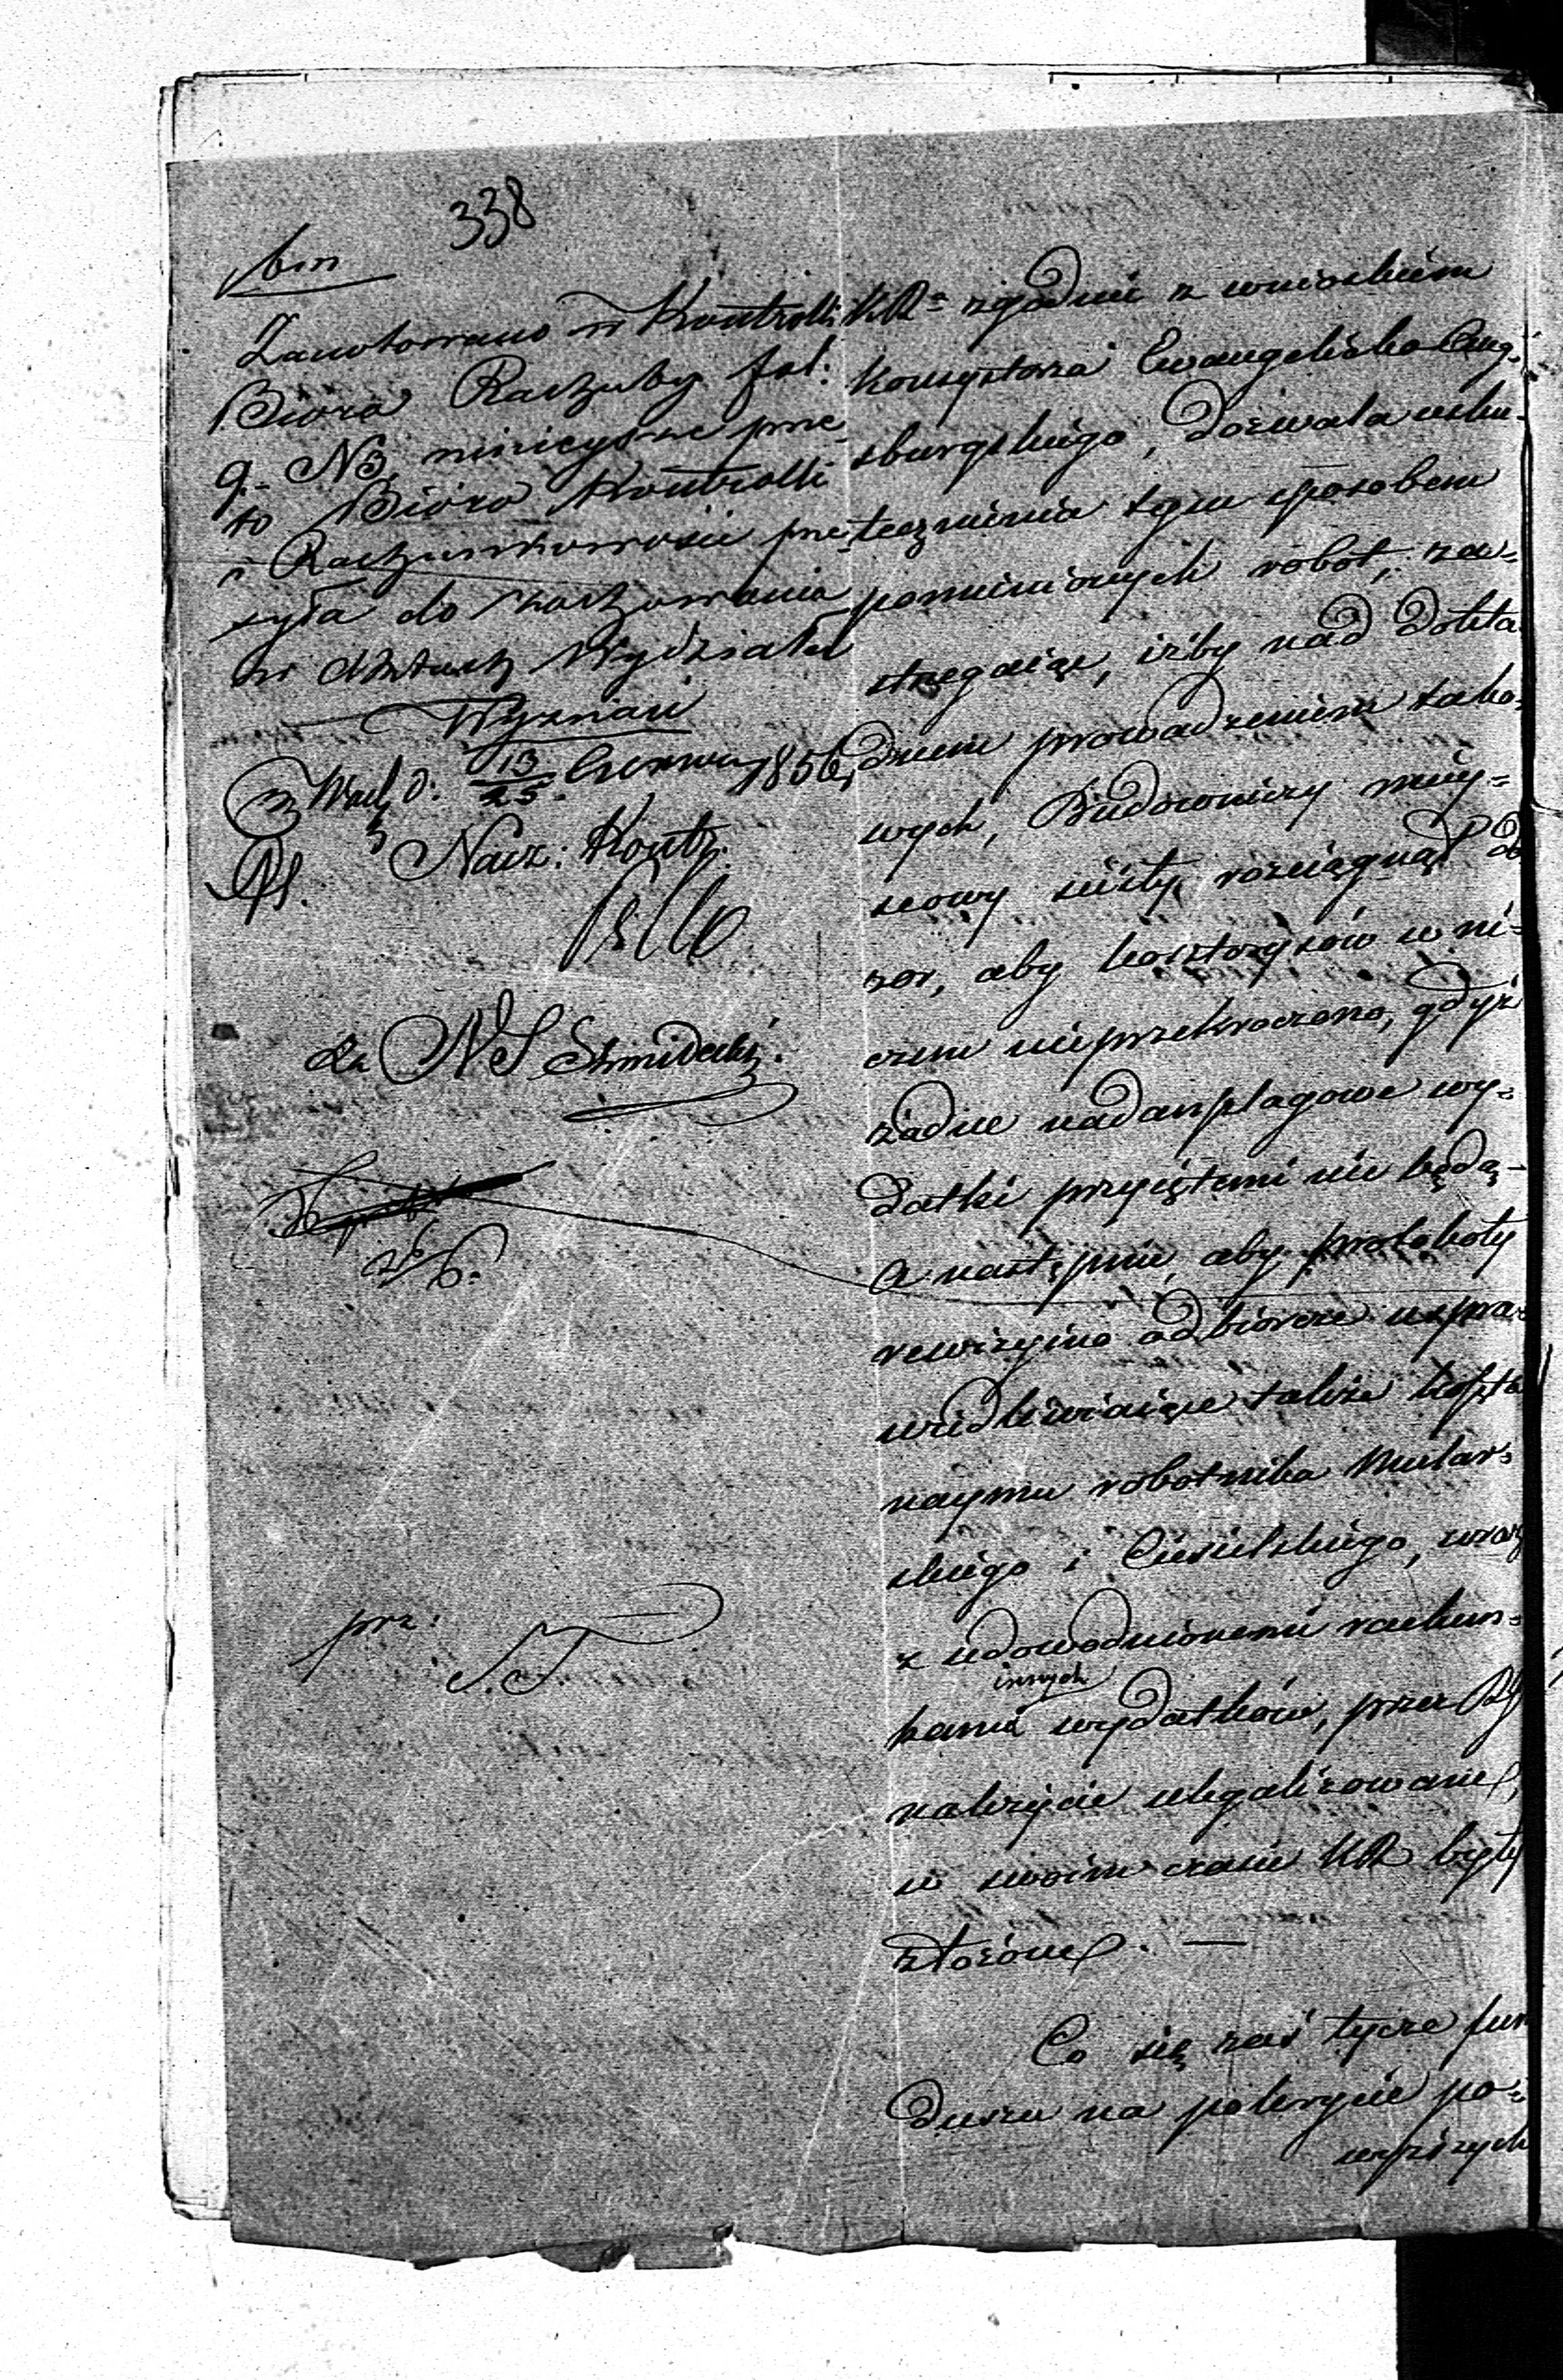 338
bm
Zanotowano w Kontrolli
Biora Rachuby fol:
9. N3, niniejsze prze
to Bióro Kontrolli
i Rachunkowości prze-
syła do zachowania
w Aktach Wydziału
Wyznań
d. 13/25 Czerwca 1856
Nacz: Kontr.
Za NS
26/6.
prz:
S.T
KR zgodnie z wnioskiem
Konsystorza Ewangelicko Aug-
sburgskiego, dozwala usku-
tecznienia tym sposobem
pomienionych robot, za-
strzegaiąc, iżby nad dokła
dnem prowadzeniem tako-
wych, Budowniczy miey-
scowy ścisły rozciągnął do
zor, aby kosztorysów w ni-
czem nieprzekroczono, gdyż
żadne nadanszlagowe wy-
datki przyiętemi nie będą -
a następnie, aby protokoły
rewizyjno odbiorcze uspra-
wiedliwiaiące także koszta
naymu robotnika Mular-
skiego i Ciesielskiego, wraz
z udowodnionemi rachun-
innych
kami wydatków, przez
należycie ulegalizowane,
w swoim czasie KR były
złożone. —
Co się zaś tycze fun
duszu na pokrycie po-
wyższych